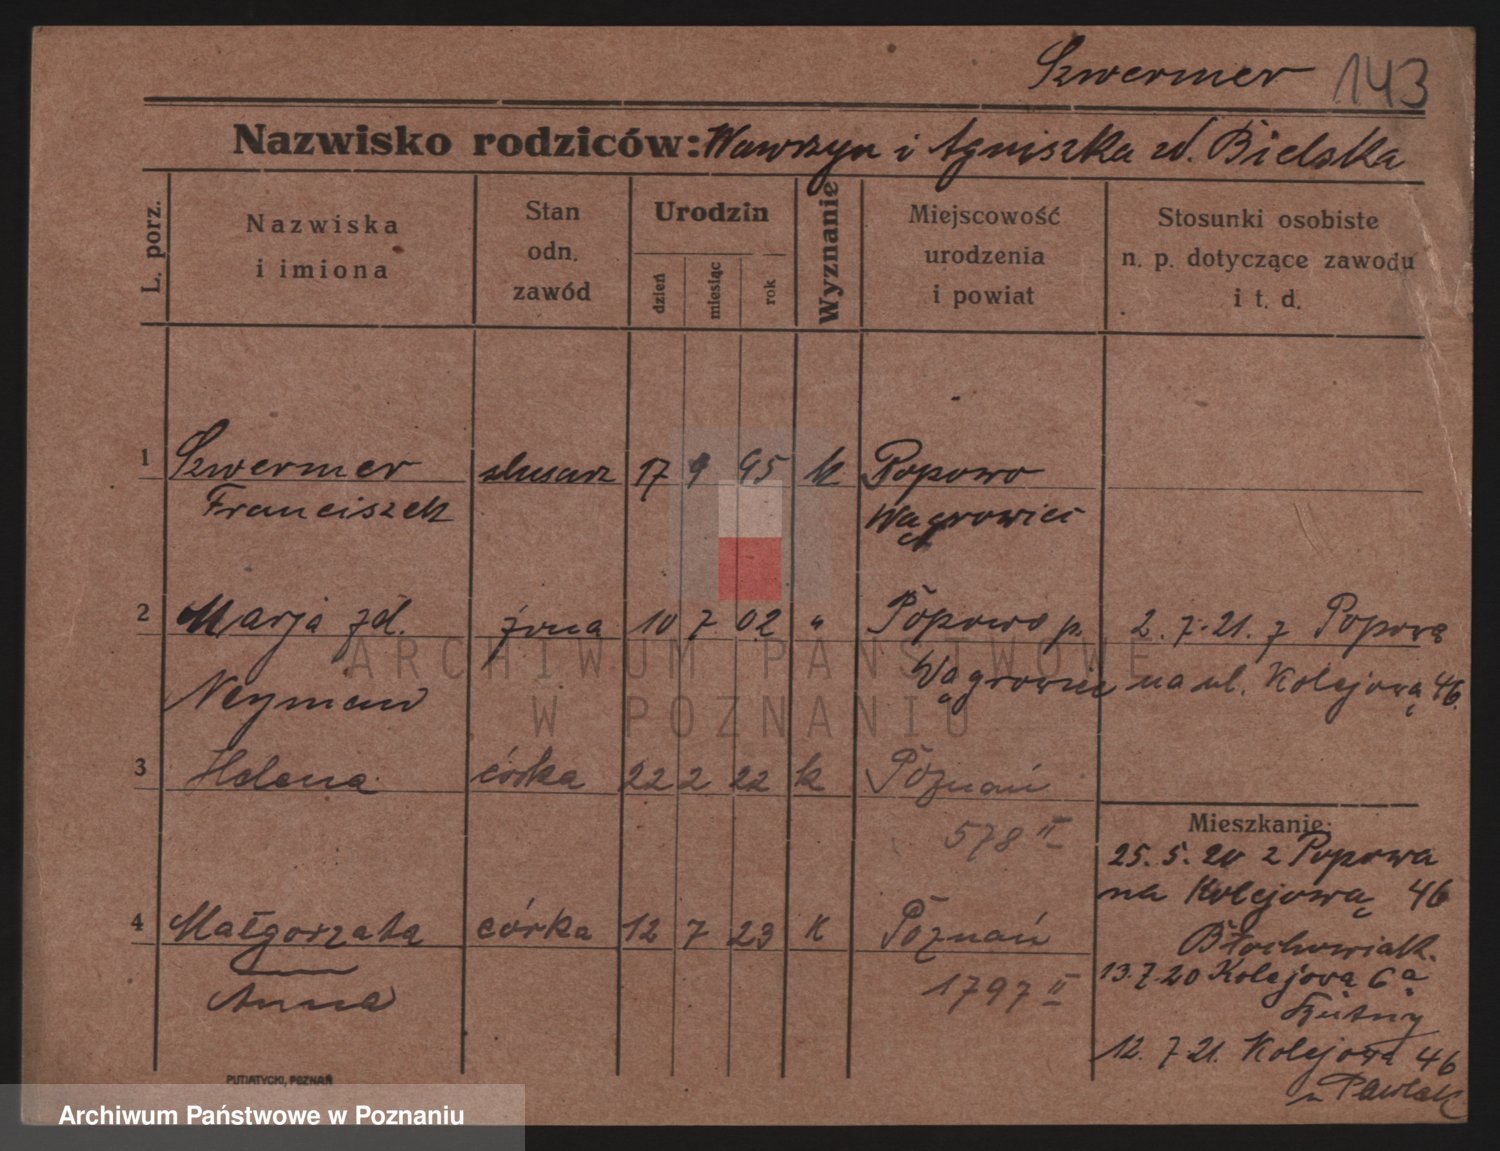 Szwermer 143
Nazwisko rodziców: Wawrzyn i Agniszka zd. Bielska
L. porz.
Nazwiska
i imiona
Stan
odn.
zawód
Urodzin
dzień
miesiąc
rok
Wyznanie
Miejscowość
urodzenia
i powiat
Stosunki osobiste
n. p. dotyczące zawodu
i t. d.
1 Szwermer ślusarz 17 9 95 k Popowo
Franciszek Wągrowiec
2 Marja zd. żona 10 7 02 " Popowo p. 2. 7. 21. z Popowa
Neyman Wągrowiec na ul. Kolejową 46.
3 Helena córka 22 2 22 k Poznań
578 II
4 Małgorzata córka 12 7 23 K Poznań
Anna 1797 II
Mieszkanie:
25. 5. 20 z Popowa
na Kolejową 46
Błochowiak.
13. 7 20 Kolejowa 6a
12. 7 21. Kolejowa 46
u Pawlak
PUTIATYCKI, POZNAŃ
ARCHIWUM PAŃSTWOWE
W POZNANIU
Archiwum Państwowe w Poznaniu